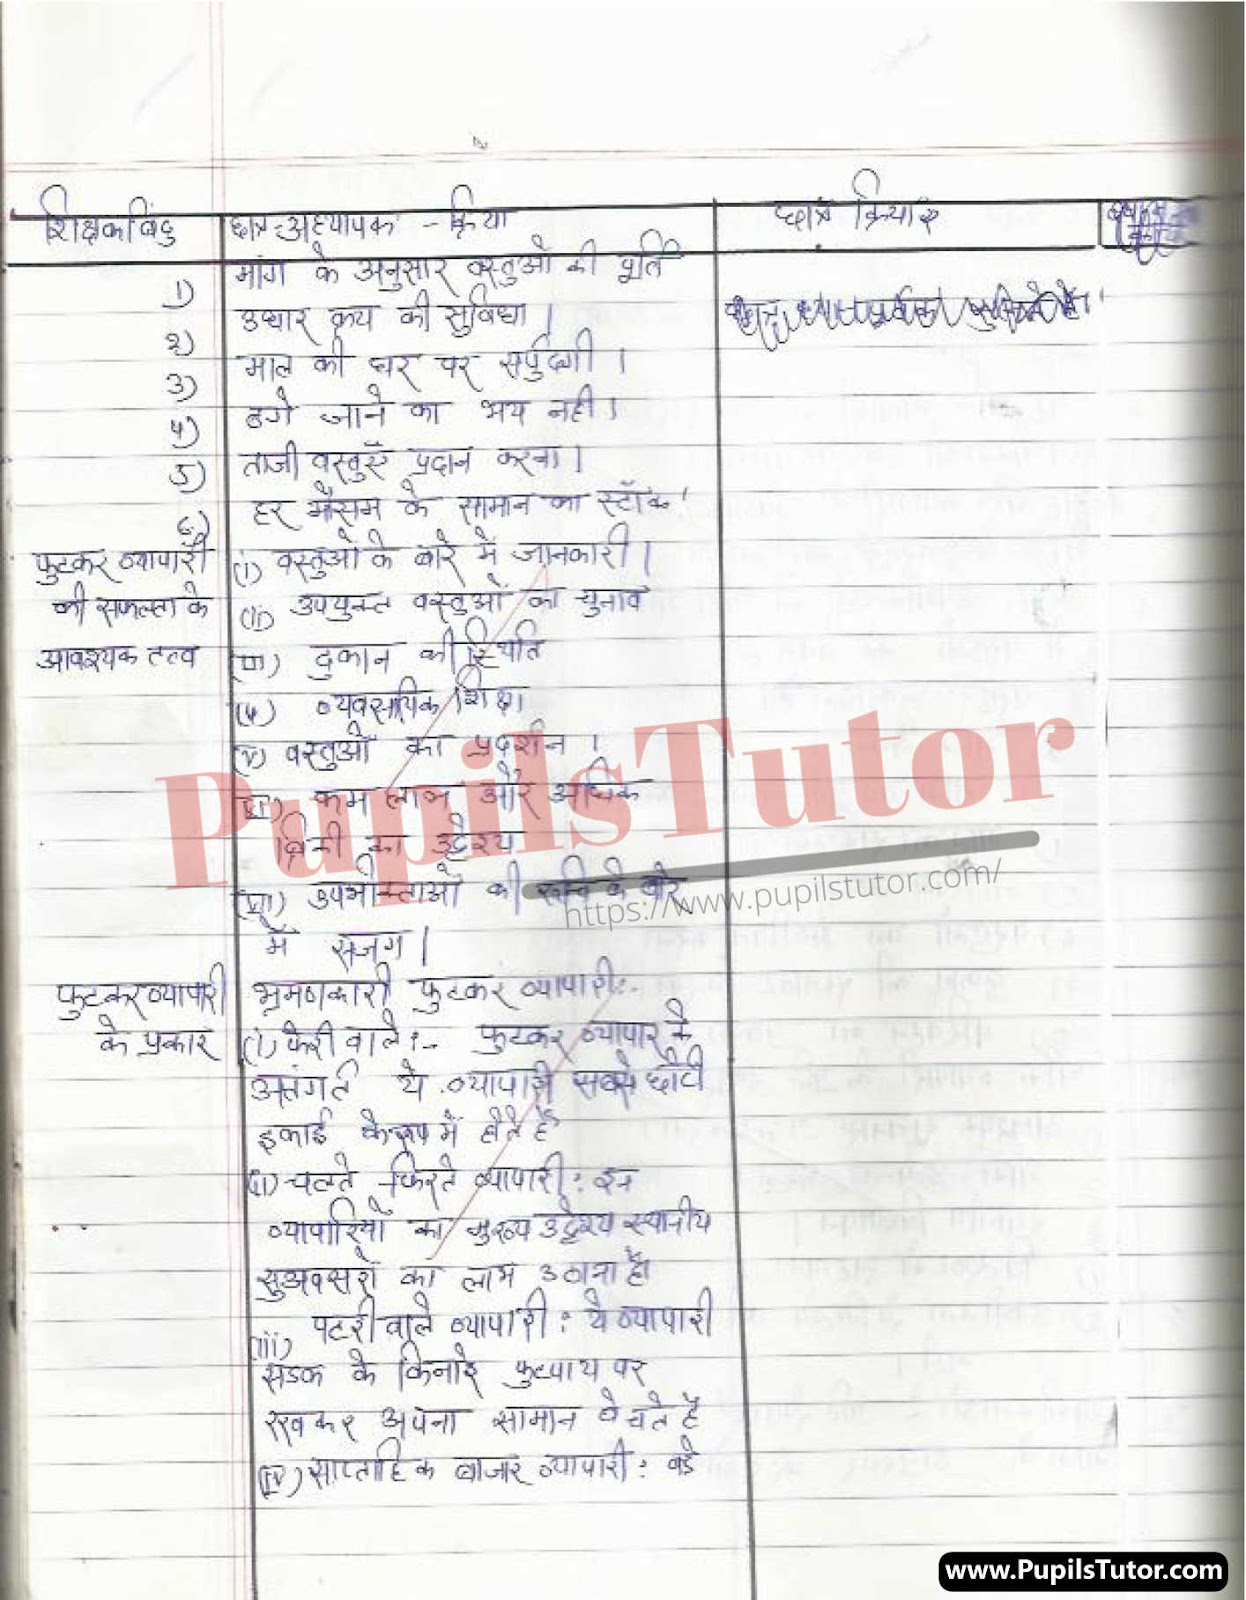 शिक्षकबिंदु छात्र-अध्यापक - क्रिया छात्र क्रियाएं
1) मांग के अनुसार वस्तुओं की पूर्ति
2) उधार क्रय की सुविधा ।
3) माल की घर पर सर्पुदगी ।
4) ठगे जाने का भय नही ।
5) ताजी वस्तुएँ प्रदान करना ।
6) हर मौसम के सामान का स्टॉक ।
फुटकर व्यापारी (i) वस्तुओ के बारे में जानकारी ।
की सफलता के (ii) उपयुक्त वस्तुओं का चुनाव
आवश्यक तत्व (iii) दुकान की स्थिति
(iv) व्यवसायिक शिक्षा
(v) वस्तुओं का प्रदर्शन ।
(vi) कम लाभ और अधिक
बिक्री का उद्देश्य
(vii) उपभोक्ताओं की रूचि के बारे
में सजग ।
फुटकर व्यापारी भ्रमणकारी फुटकर व्यापारी:-
के प्रकार (i) फेरी वाले:- फुटकर व्यापार के
अतंगर्त ये व्यापारी सबसे छोटी
इकाई के रूप में होते हैं
(ii) चलते - फिरते व्यापारी: इन
व्यापारियों का मुख्य उद्देश्य स्थानीय
सुअवसरों का लाभ उठाना है।
(iii) पटरी वाले व्यापारी: ये व्यापारी
सडक के किनारे फुटपाथ पर
रखकर अपना सामान बेचते है
(iv) साप्ताहिक बाजार व्यापारी: बडे
PupilsTutor
https://www.pupilstutor.com/
www.PupilsTutor.com